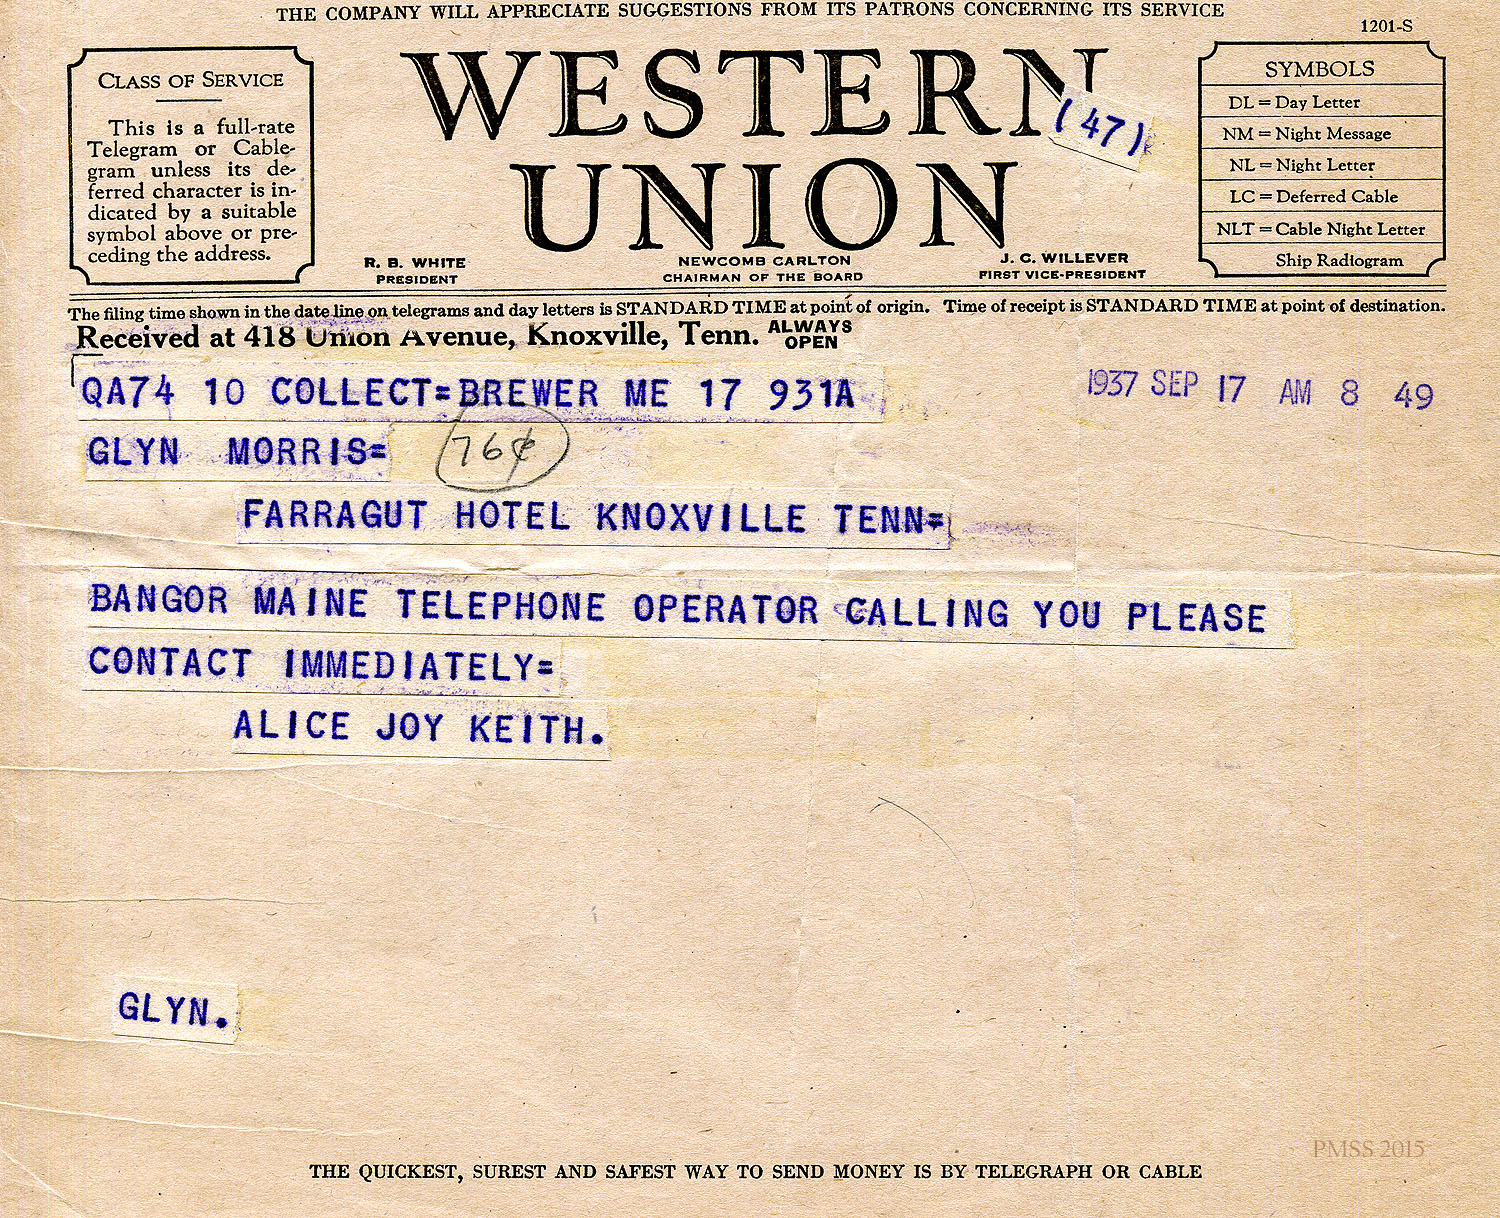 THE COMPANY WILL APPRECIATE SUGGESTIONS FROM ITS PATRONS CONCERNING ITS SERVICE
1201-S
CLASS OF SERVICE
This is a full-rate
Telegram or Cable-
gram unless its de-
ferred character is in-
dicated by a suitable
symbol above or pre-
ceding the address.
WESTERN
UNION
(47)
R. B. WHITE
PRESIDENT
NEWCOMB CARLTON
CHAIRMAN OF THE BOARD
J. C. WILLEVER
FIRST VICE-PRESIDENT
SYMBOLS
DL = Day Letter
NM = Night Message
NL = Night Letter
LC = Deferred Cable
NLT = Cable Night Letter
Ship Radiogram
The filing time shown in the date line on telegrams and day letters is STANDARD TIME at point of origin. Time of receipt is STANDARD TIME at point of destination.
Received at 418 Union Avenue, Knoxville, Tenn. ALWAYS OPEN
QA74 10 COLLECT=BREWER ME 17 931A
1937 SEP 17 AM 8 49
GLYN MORRIS=
76¢
FARRAGUT HOTEL KNOXVILLE TENN=
BANGOR MAINE TELEPHONE OPERATOR CALLING YOU PLEASE
CONTACT IMMEDIATELY=
ALICE JOY KEITH.
GLYN.
PMSS 2015
THE QUICKEST, SUREST AND SAFEST WAY TO SEND MONEY IS BY TELEGRAPH OR CABLE